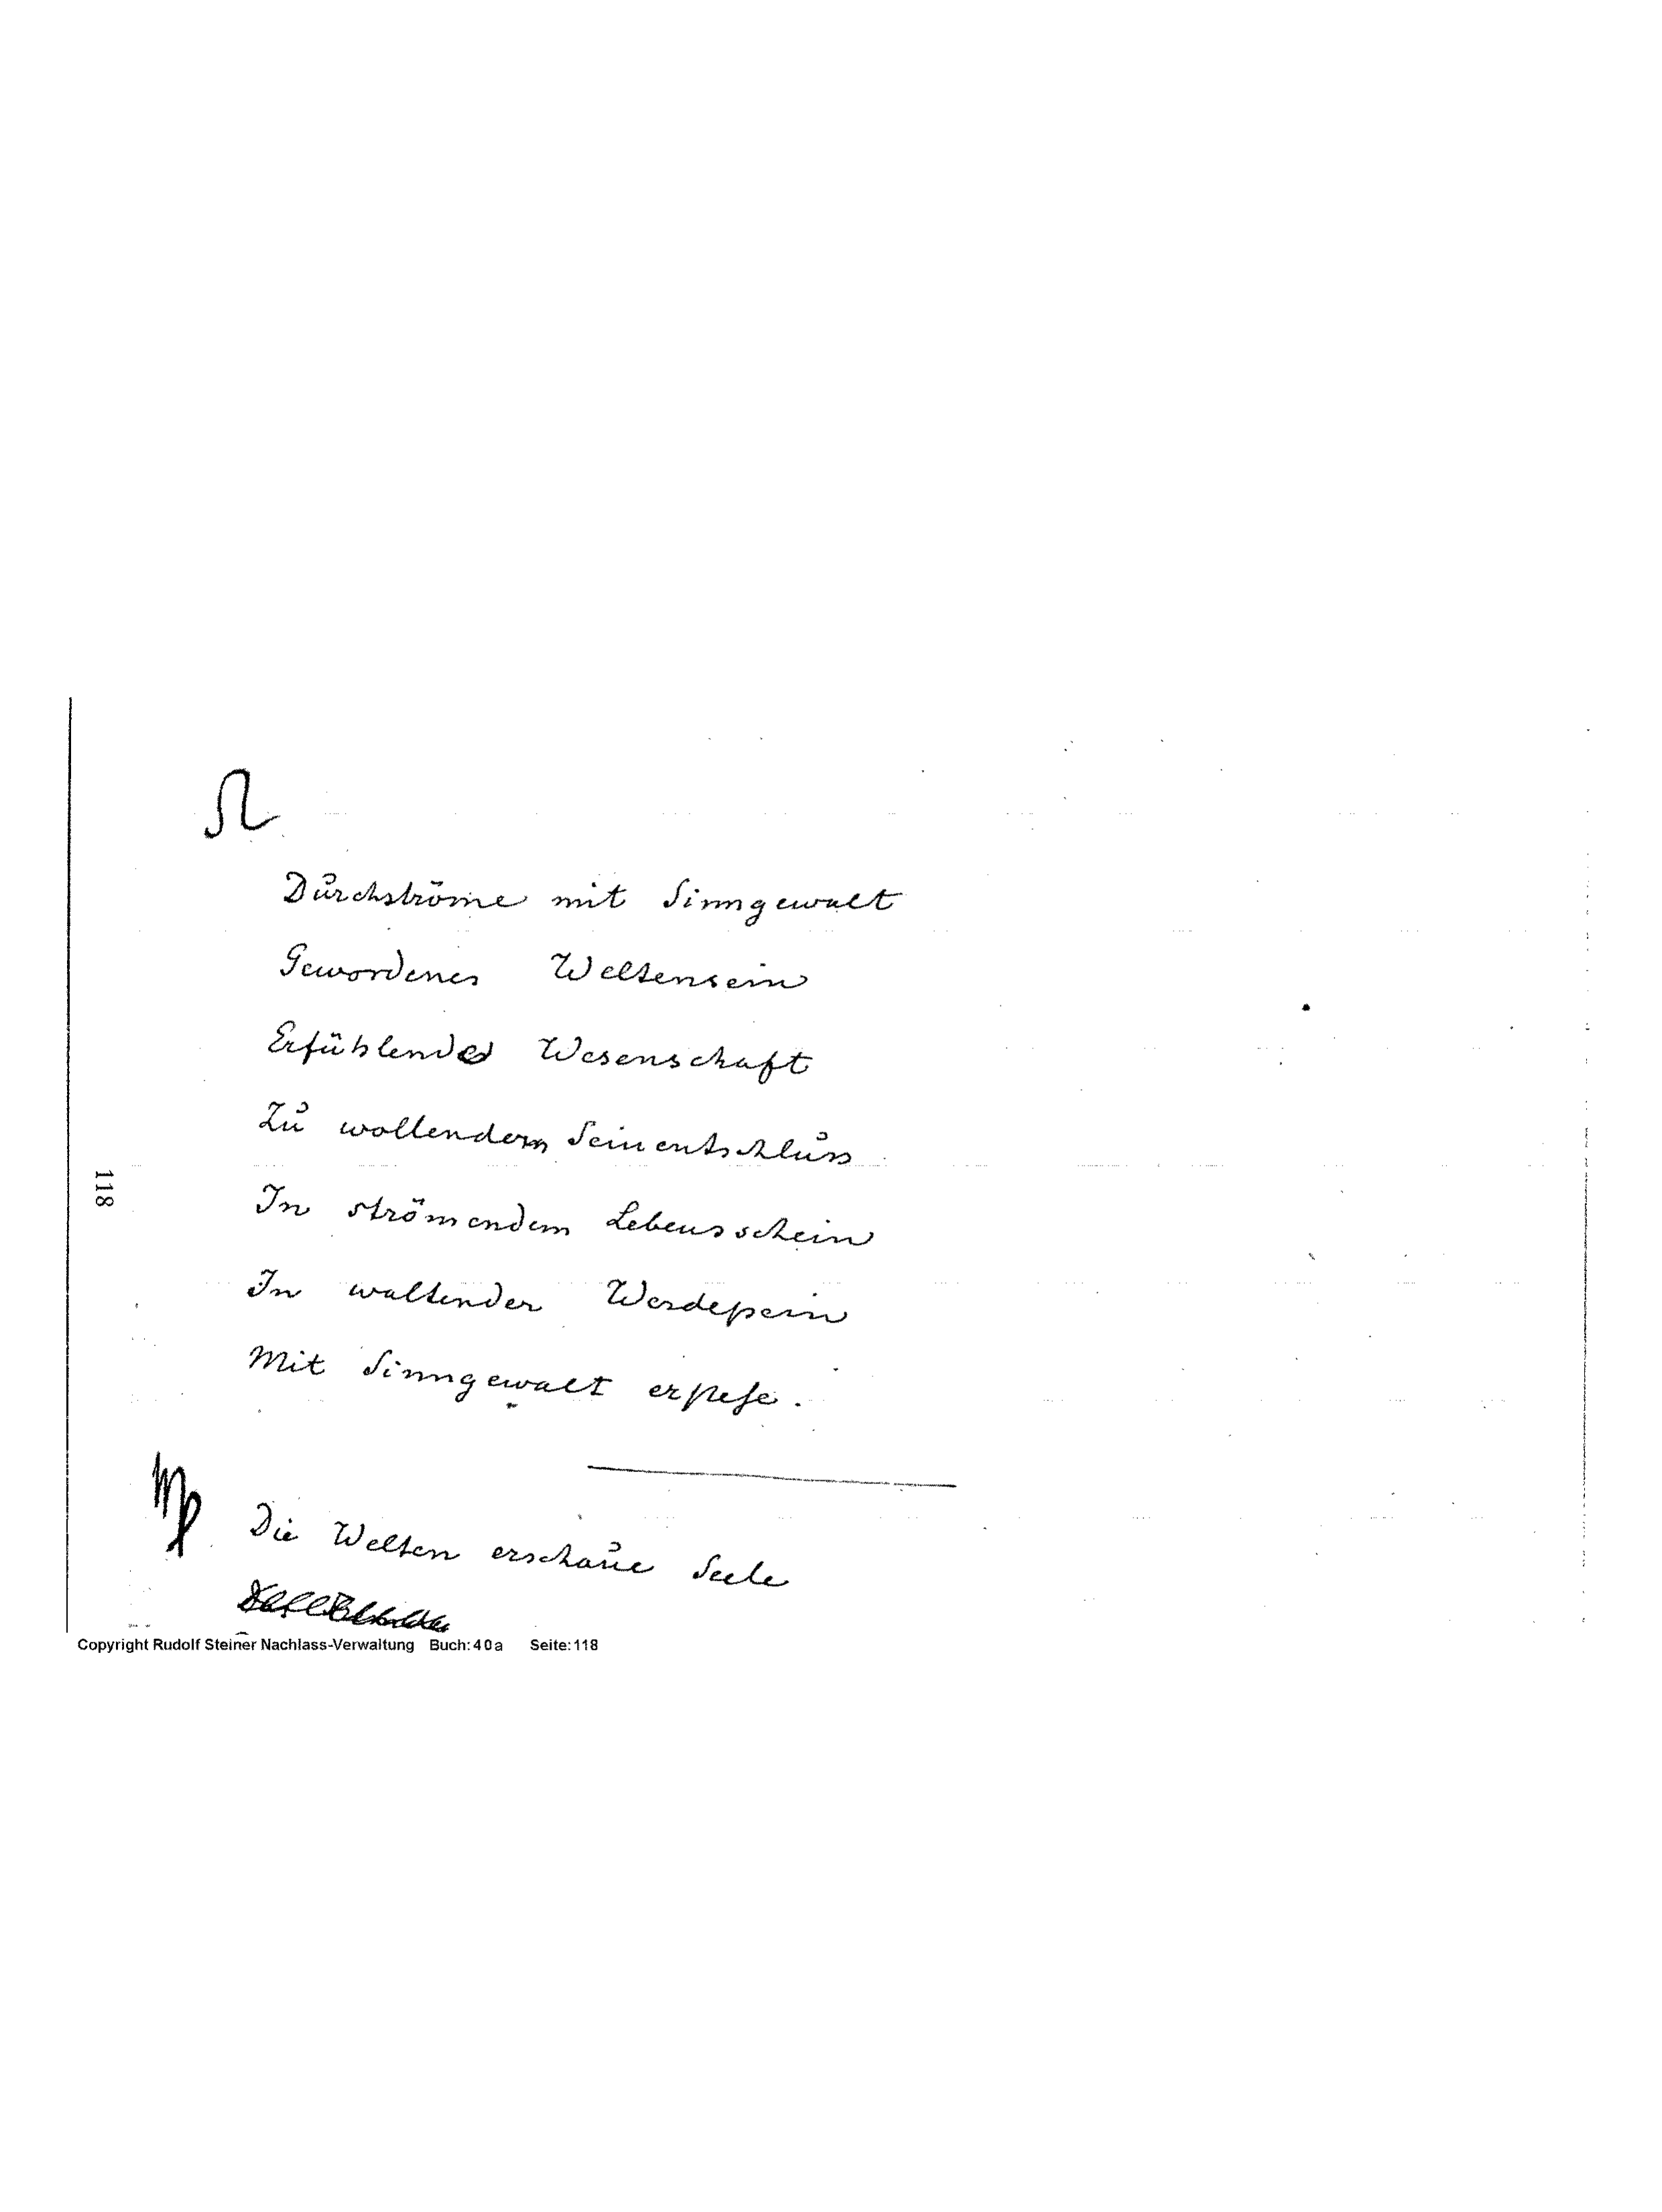 ♌
Durchströme mit Sinngewalt
Gewordenes Weltensein
Erfühlende Wesenschaft
Zu wollendem Seinentschluss
In strömendem Lebensschein
In waltender Werdepein
Mit Sinngewalt erstehe.
♍ Die Welten erschaue Seele
118
Copyright Rudolf Steiner Nachlass-Verwaltung Buch: 40a Seite: 118